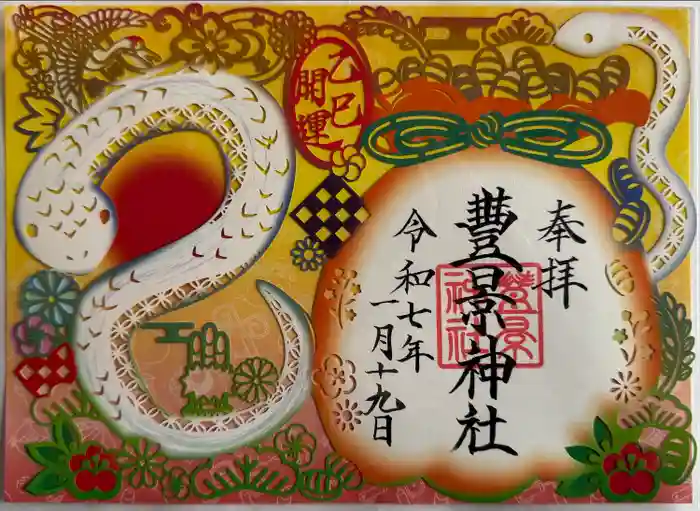 乙巳
開運
奉拝
豊景神社
令和七年
一月十九日